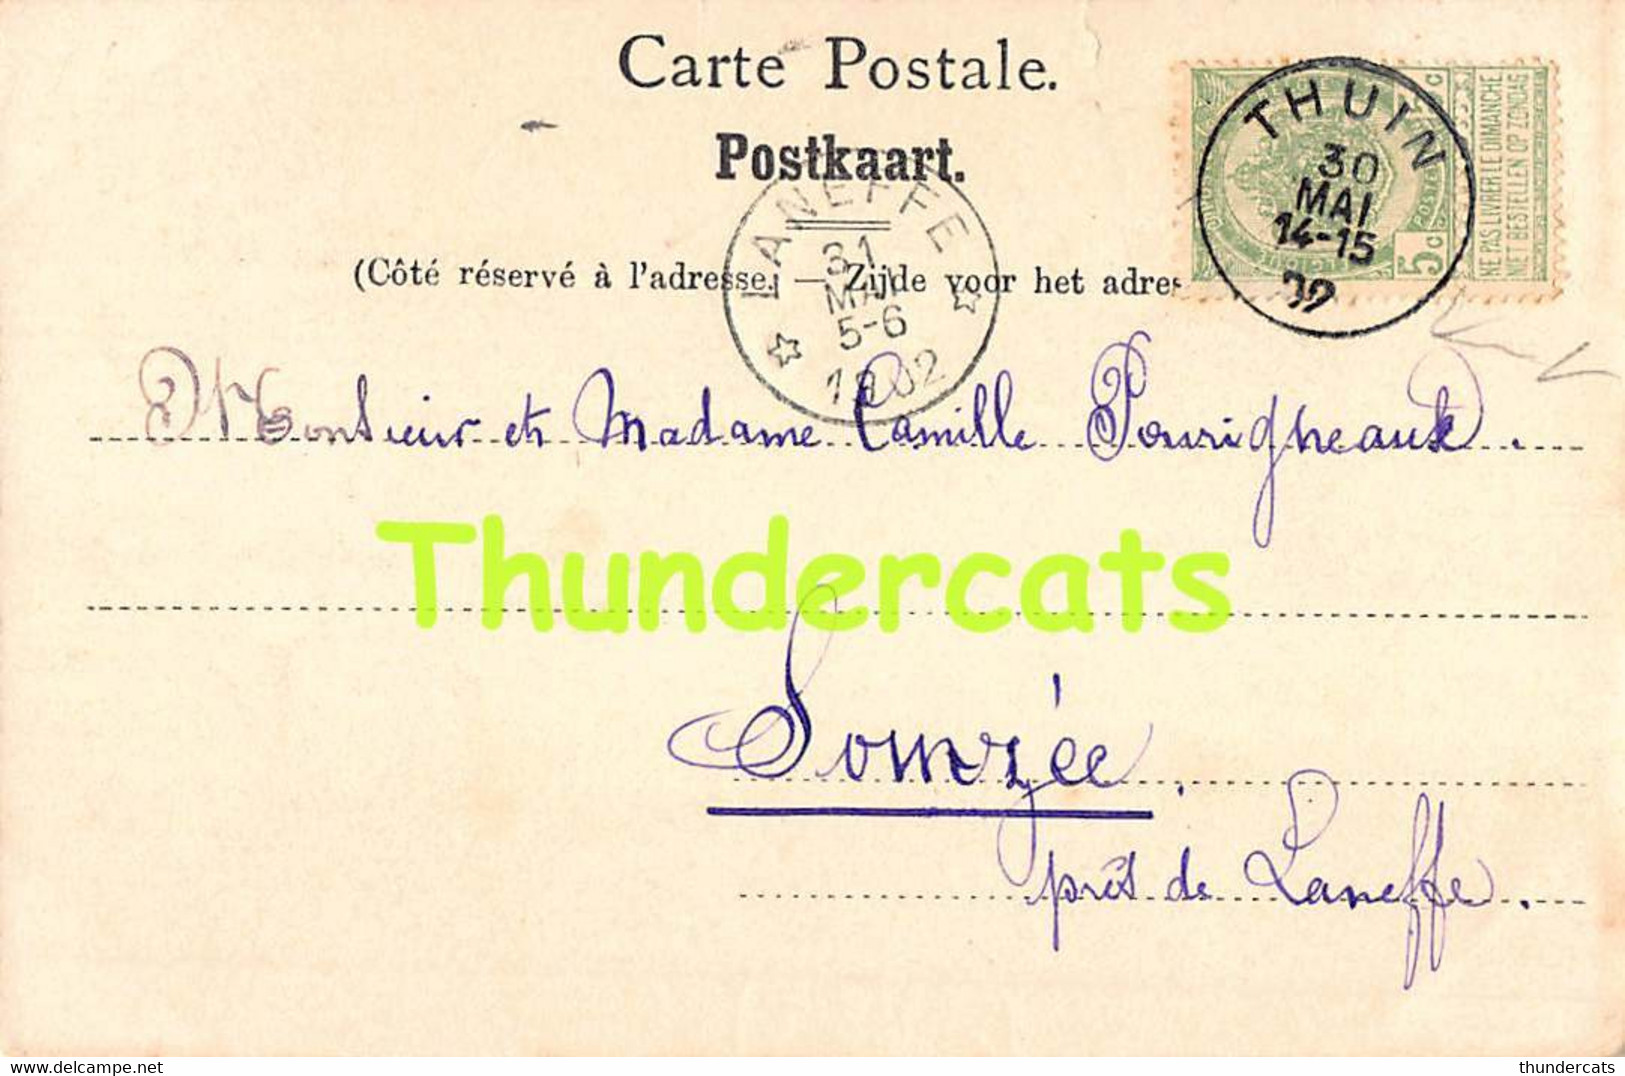 Carte Postale.
Postkaart.
THUIN
30
MAI
14-15
5 C
5 C
NE PAS LIVRER LE DIMANCHE
NIET BESTELLEN OP ZONDAG
LANEFFE
31
MAI
5-6
1902
(Côté réservé à l'adresse. — Zijde voor het adres
Monsieur et Madame Camille Pourigneaux.
Thundercats
Somzée.
près de Laneffe.
delcampe.net
thundercats